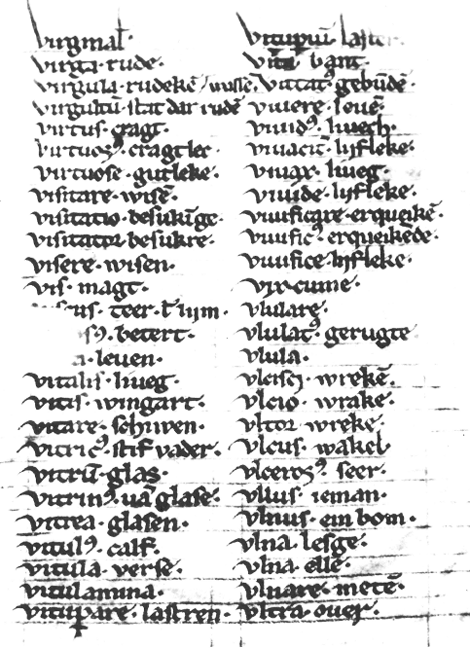 virginal·
virga· rude·
virgula· rudekē
virgultū· stat dar rude
virtus· cragt·
virtuosꝰ· cragtlec·
virtuose· gutleke·
visitare· wisē·
visitatio· besukīge·
visitator besukre·
visere· wisen·
vis· magt·
teer·
betert·
leuen·
vitalis· liueg·
vitis· wingart·
vitare· schiwen·
vitricꝰ· stif vader·
vitrū· glas·
vitrinꝰ· uā glase·
vitrea· glasen·
vitulꝰ· calf·
vitula· verse·
vitulamina·
vitupare· lastren·
vitupiū·
bant·
gebūdē·
viuere· louē·
viuidꝰ· liuech·
viuaciū· lyfleke·
viuax· liueg·
viuide· lyfleke·
viuificare· erqueikē·
viuificꝰ· erqueikēde·
viuifice· lyfleke·
vix· cume·
vlulare·
vlulatꝰ gerugte
vlula·
vlcisci· wrekē·
vlcio· wrake·
vltor wreke·
vlcus· wakel
vlcerosꝰ seer·
vllus· ieman·
vlmus· ein bom·
vlna· lesge·
vlna· elle·
vlnare· metē·
vltra· ouer·